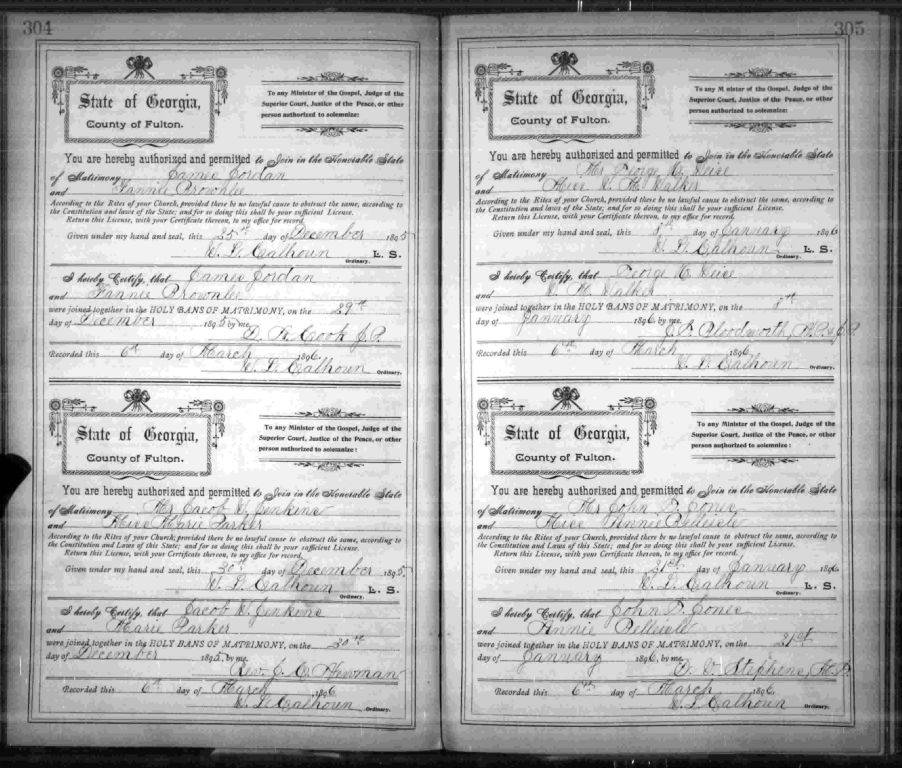 304
State of Georgia,
County of Fulton.
To any Minister of the Gospel, Judge of the
Superior Court, Justice of the Peace, or other
person authorized to solemnize:
You are hereby authorized and permitted to Join in the Honorable State
of Matrimony James Jordan
and Fannie Brownlee
According to the Rites of your Church, provided there be no lawful cause to obstruct the same, according to
the Constitution and laws of the State; and for so doing this shall be your sufficient License.
Return this License, with your Certificate thereon, to my office for record.
Given under my hand and seal, this 25th day of December 1895
W. L. Calhoun L. S.
Ordinary.
I hereby Certify, that James Jordan
and Fannie Brownlee
were joined together in the HOLY BANS OF MATRIMONY, on the 29th
day of December 1895 by me,
Cook J.P.
Recorded this 6th day of March 1896.
W. L. Calhoun Ordinary.
State of Georgia,
County of Fulton.
To any Minister of the Gospel, Judge of the
Superior Court, Justice of the Peace, or other
person authorized to solemnize:
You are hereby authorized and permitted to Join in the Honorable State
of Matrimony Mr Jacob W. Jenkins
and Miss Marie Parker
According to the Rites of your Church; provided there be no lawful cause to obstruct the same, according to
the Constitution and Laws of this State; and for so doing this shall be your sufficient License.
Return this License, with your Certificate thereon, to my office for record.
Given under my hand and seal, this 30th day of December 1895
W. L. Calhoun L. S.
Ordinary.
I hereby Certify, that Jacob W. Jenkins
and Marie Parker
were joined together in the HOLY BANS OF MATRIMONY, on the 30th
day of December 1895, by me,
Rev. J. Newman
Recorded this 6th day of March 1896.
W. L. Calhoun Ordinary.
305
State of Georgia,
County of Fulton.
To any Minister of the Gospel, Judge of the
Superior Court, Justice of the Peace, or other
person authorized to solemnize:
You are hereby authorized and permitted to Join in the Honorable State
of Matrimony Mr George
and Miss Walker
According to the Rites of your Church, provided there be no lawful cause to obstruct the same, according to
the Constitution and laws of this State; and for so doing this shall be your sufficient License.
Return this License, with your Certificate thereon, to my office for record.
Given under my hand and seal, this day of January 1896
W. L. Calhoun L. S.
Ordinary.
I hereby Certify, that George
and Walker
were joined together in the HOLY BANS OF MATRIMONY, on the
day of January 1896 by me,
Bloodworth, J.P.
Recorded this 6th day of March 1896.
W. L. Calhoun Ordinary.
State of Georgia,
County of Fulton.
To any Minister of the Gospel, Judge of the
Superior Court, Justice of the Peace, or other
person authorized to solemnize:
You are hereby authorized and permitted to Join in the Honorable State
of Matrimony Mr John Jones
and Miss Annie
According to the Rites of your Church, provided there be no lawful cause to obstruct the same, according to
the Constitution and Laws of this State; and for so doing this shall be your sufficient License.
Return this License, with your Certificate thereon, to my office for record.
Given under my hand and seal, this 21st day of January 1896
W. L. Calhoun L. S.
Ordinary.
I hereby Certify, that John Jones
and Annie
were joined together in the HOLY BANS OF MATRIMONY, on the 21st
day of January 1896, by me,
Stephens,
Recorded this 6th day of March 1896.
W. L. Calhoun Ordinary.